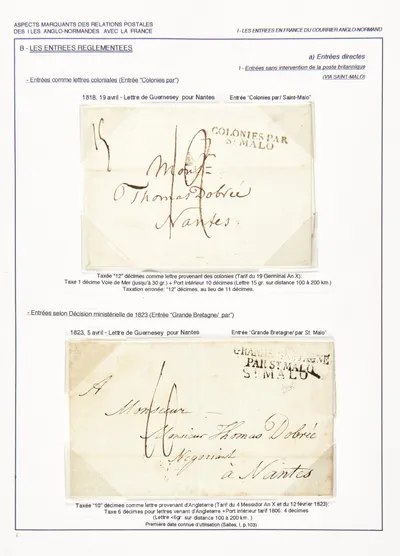 ASPECTS MARQUANTS DES RELATIONS POSTALES
DES ILES ANGLO-NORMANDES AVEC LA FRANCE
I - LES ENTREES EN FRANCE DU COURRIER ANGLO-NORMAND
B - LES ENTREES REGLEMENTEES
a) Entrées directes
I - Entrées sans intervention de la poste britannique
(VIA SAINT-MALO)
- Entrées comme lettres coloniales (Entrée "Colonies par")
1818, 19 avril - Lettre de Guernesey pour Nantes
Entrée "Colonies par/ Saint-Malo"
15
COLONIES PAR
ST MALO
Monsr
Thomas Dobrée
Nantes
Taxée "12" décimes comme lettre provenant des colonies (Tarif du 19 Germinal An X):
Taxe 1 décime Voie de Mer (jusqu'à 30 gr.) + Port intérieur 10 décimes (Lettre 15 gr. sur distance 100 à 200 km.)
Taxation erronée: "12" décimes, au lieu de 11 décimes.
- Entrées selon Décision ministérielle de 1823 (Entrée "Grande Bretagne/ par")
1823, 5 avril - Lettre de Guernesey pour Nantes
Entrée "Grande Bretagne/ par St. Malo"
GRANDE BRETAGNE
PAR ST MALO
ST MALO
A
Monsieur
Monsieur Thomas Dobrée
Negociant
à Nantes
Taxée "10" décimes comme lettre provenant d'Angleterre (Tarif du 4 Messidor An X et du 12 février 1823):
Taxe 6 décimes pour lettres venant d'Angleterre +Port intérieur tarif 1806: 4 décimes
(Lettre <6gr. sur distance 100 à 200 km. )
Première date connue d'utilisation (Salles, I, p.103)